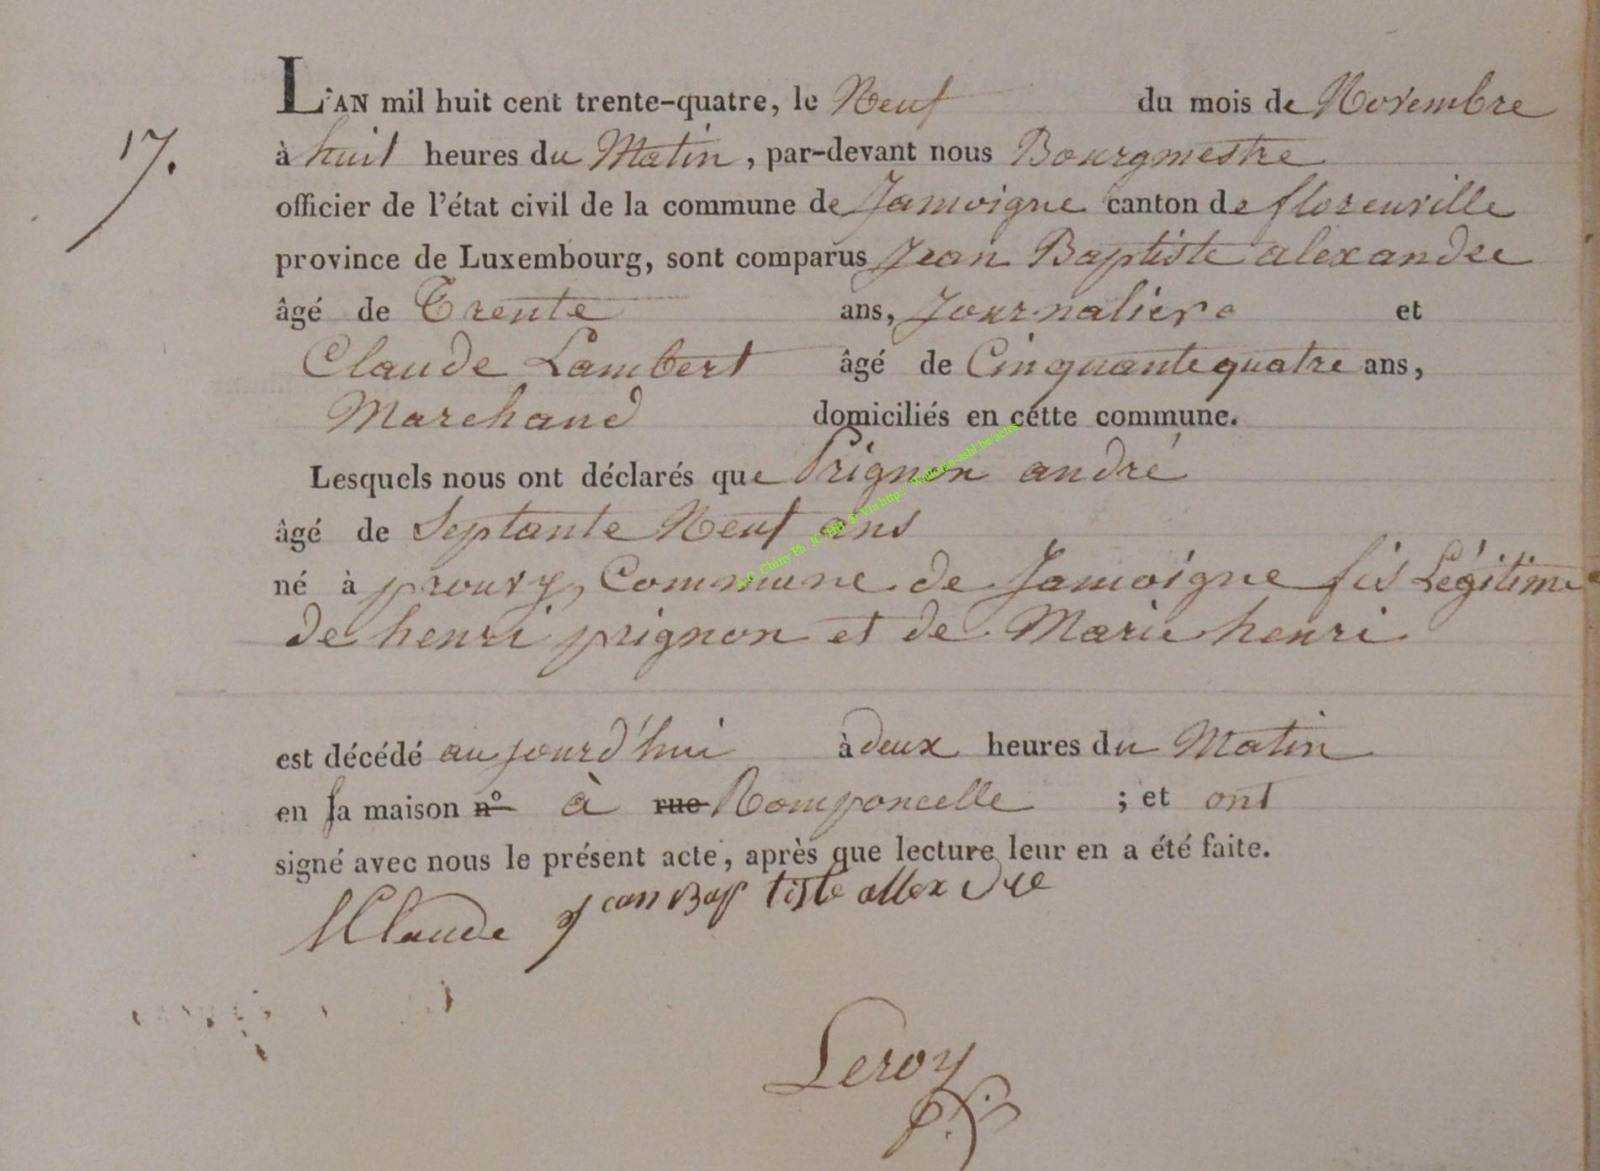 17.
L'AN mil huit cent trente-quatre, le Neuf du mois de Novembre
à huit heures du Matin, par-devant nous Bourgmestre
officier de l'état civil de la commune de Jamoigne canton de florenville
province de Luxembourg, sont comparus Jean Baptiste alexandre
âgé de Trente ans, Journaliere et
Claude Lambert âgé de Cinquante quatre ans,
Marchand domiciliés en cette commune.
Lesquels nous ont déclarés que Prignon andré
âgé de Septante Neuf ans
né à prouvy, Commune de Jamoigne fis Légitime
de henri prignon et de Marie henri
est décédé aujourd'hui à deux heures du Matin
en sa maison n° à rue Romponcelle ; et ont
signé avec nous le présent acte, après que lecture leur en a été faite.
LClaude Jean Bap tiste allexdre
Leroy